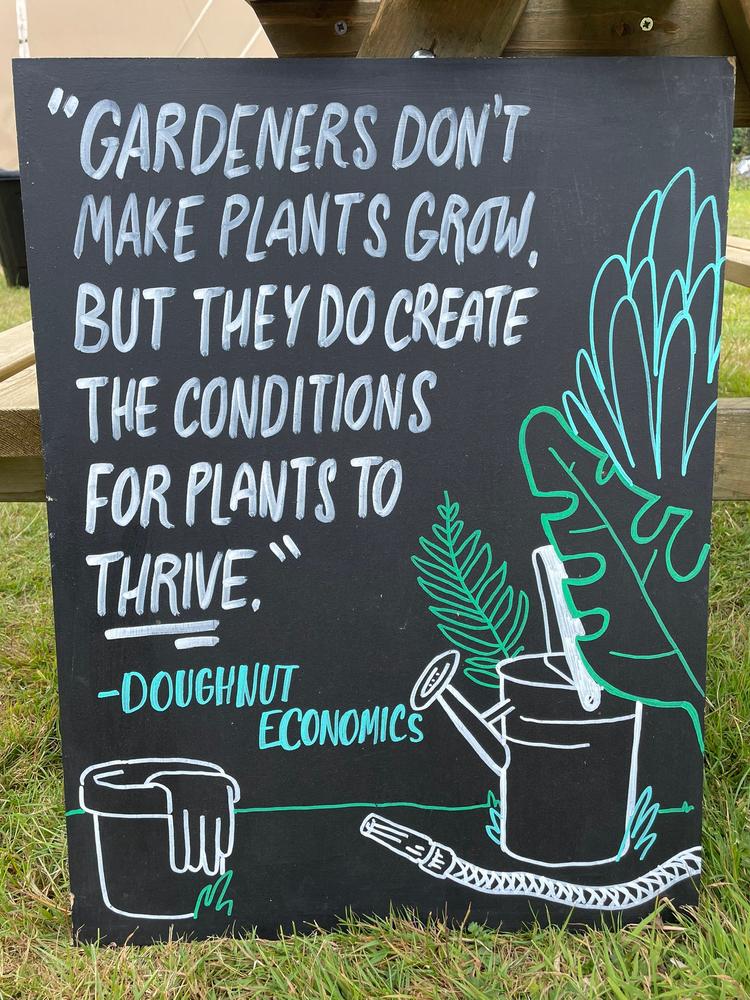 "GARDENERS DON'T
MAKE PLANTS GROW,
BUT THEY DO CREATE
THE CONDITIONS
FOR PLANTS TO
THRIVE."
-DOUGHNUT
ECONOMICS